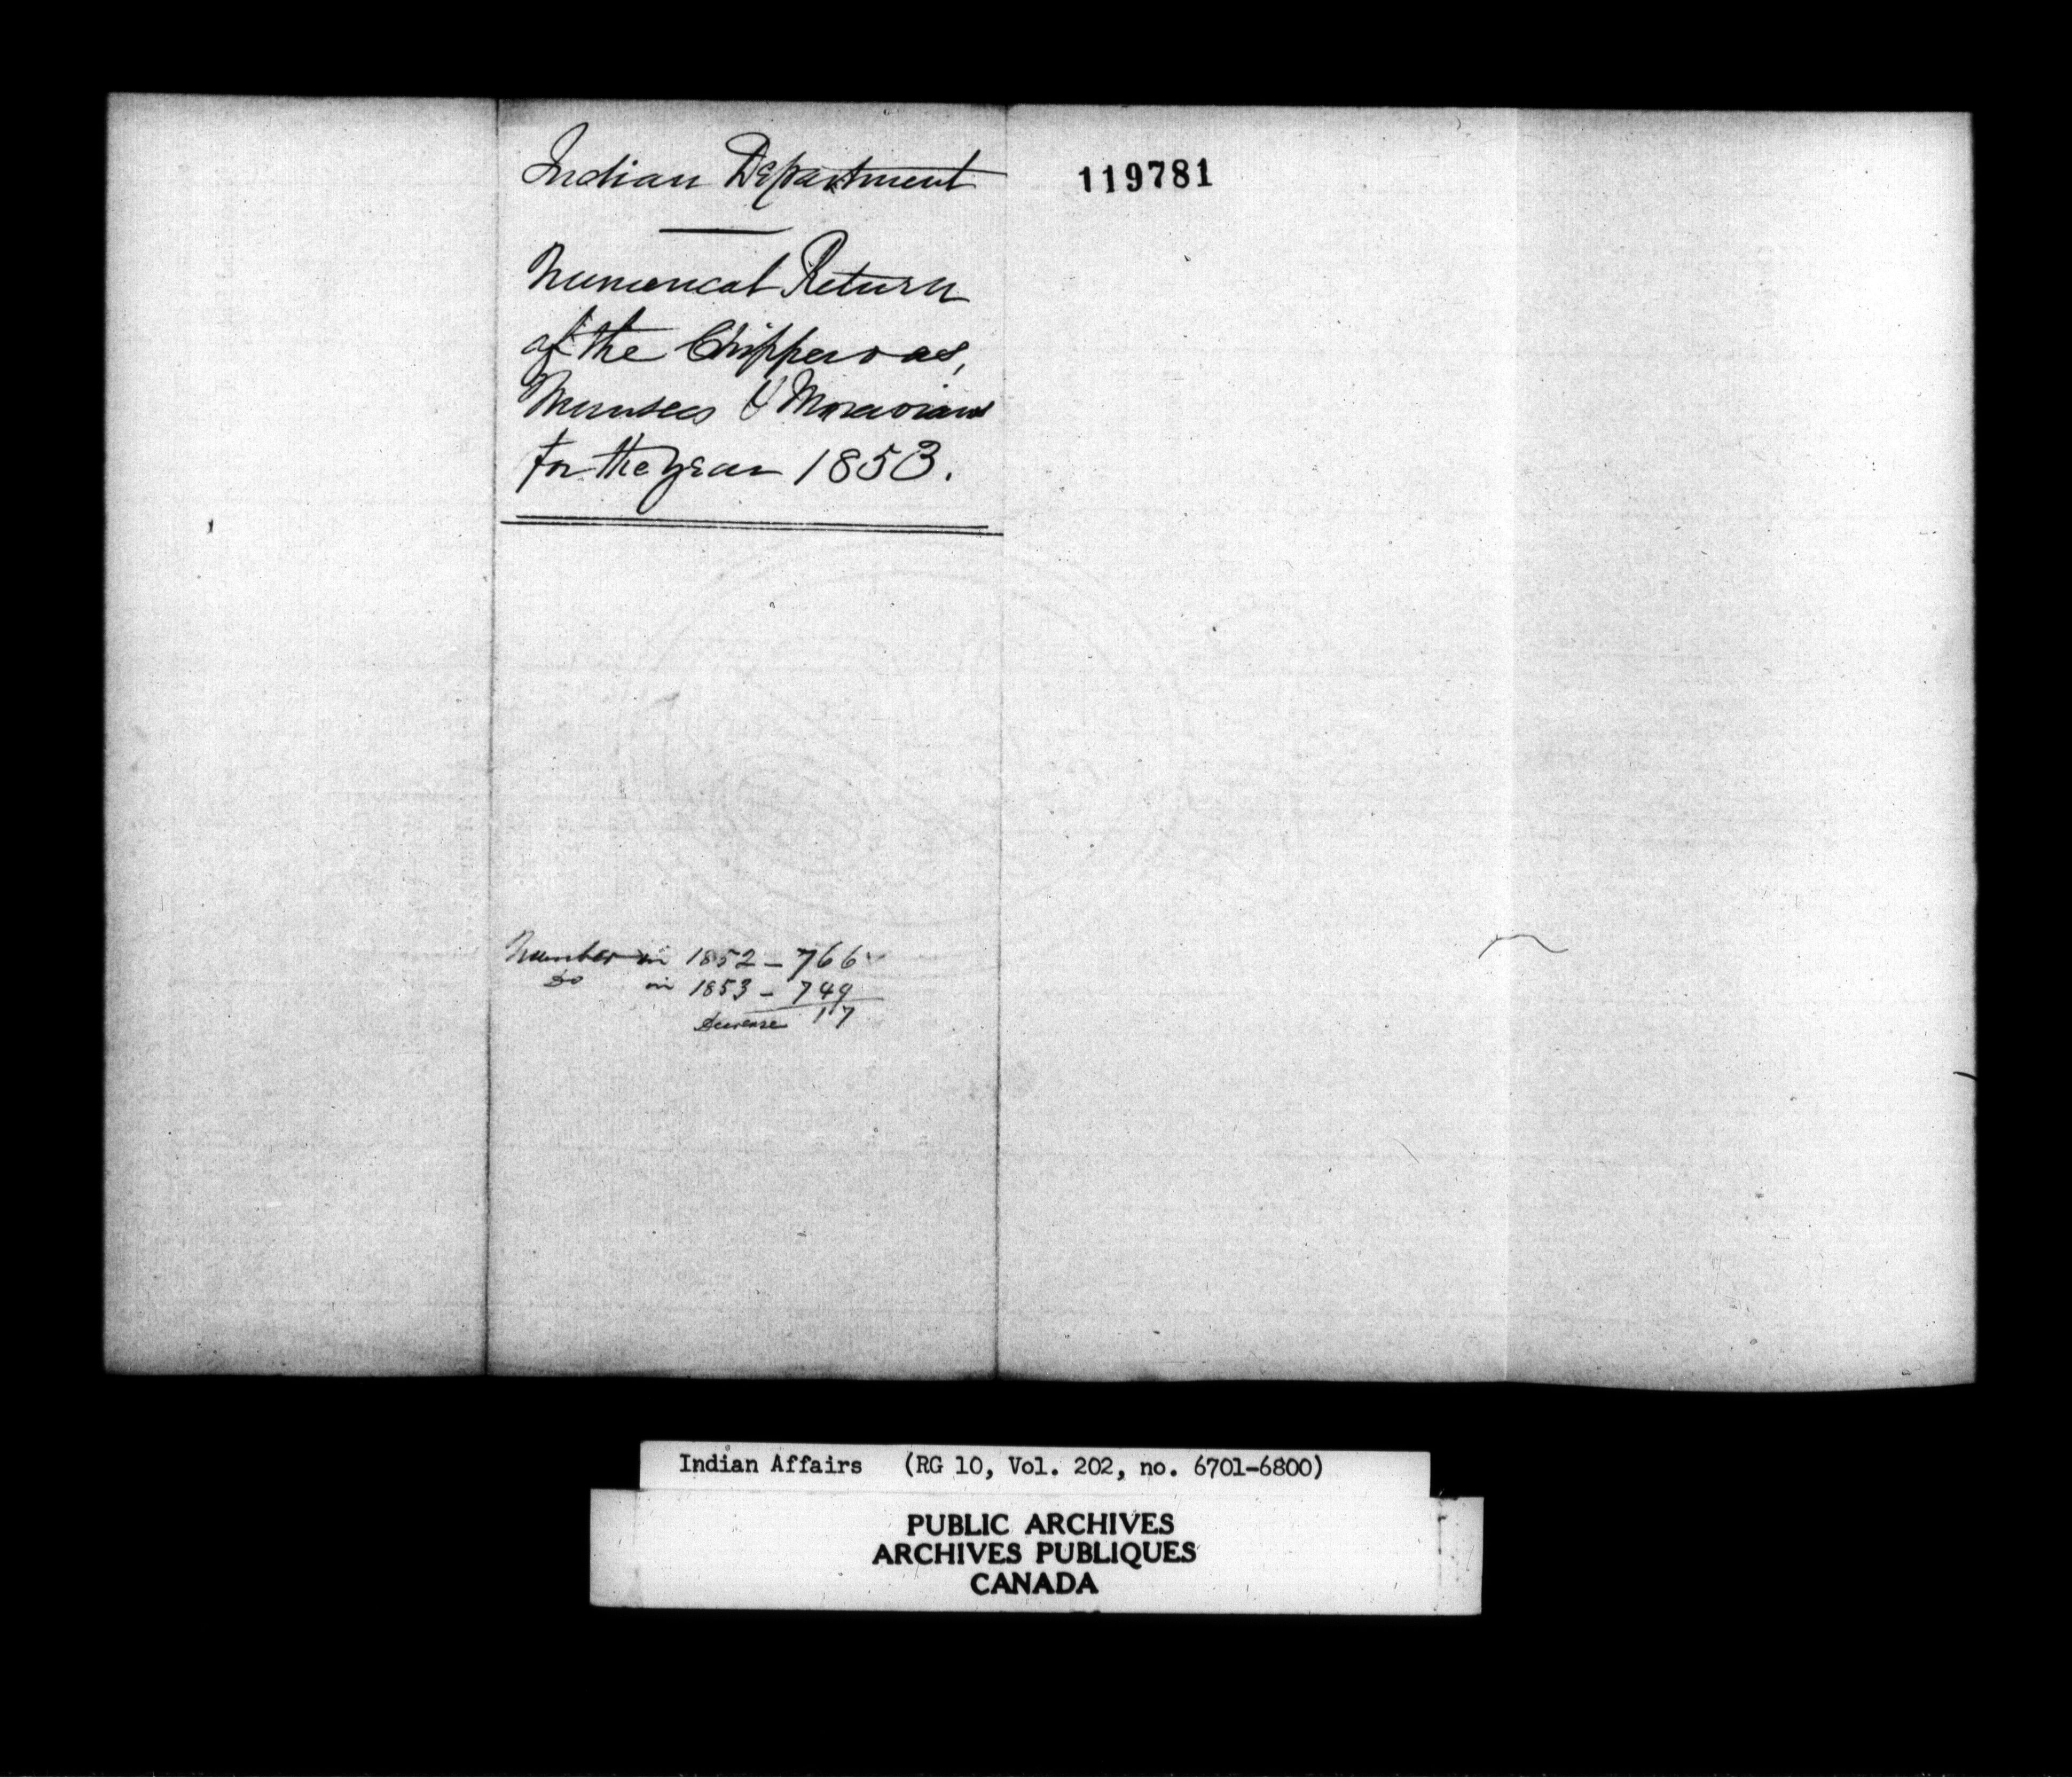 Indian Department
119781
Numerical Return
of the Chippewas,
Munsees & Moravians
for the year 1853.
Number in 1852 - 766
Do in 1853 - 749
Decrease 17
Indian Affairs (RG 10, Vol. 202, no. 6701-6800)
PUBLIC ARCHIVES
ARCHIVES PUBLIQUES
CANADA